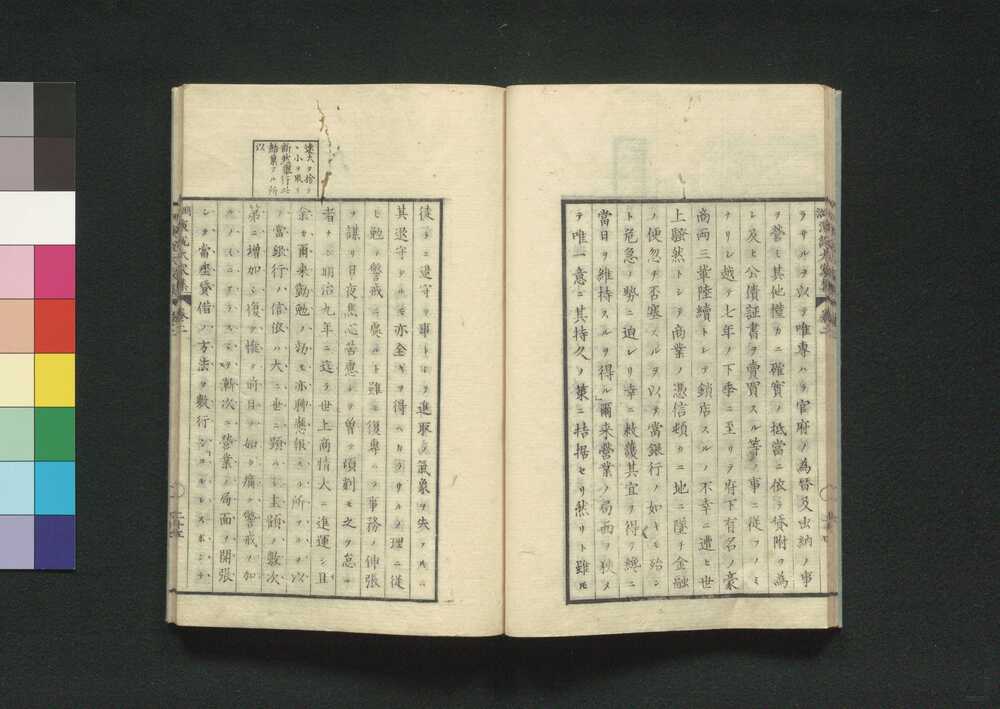 ラサルヲ以テ唯專ハラ官府ノ為替及出納ノ事
ヲ營ミ其他僅カニ確實ノ抵當ニ依テ貸附ヲ為
シ及ヒ公債証書ヲ賣買スル等ノ事ニ從フノミ
ナリシ越テ七年ノ下季ニ至リテ府下有名ノ豪
商両三輩陸續トシテ鎖店スルノ不幸ニ遭ヒ世
上騷然トシテ商業ノ憑信頓カニ地ニ墜チ金融
ノ便忽チ否塞スルヲ以テ當銀行ノ如キモ殆ン
ト危急ノ勢ニ迫レリ幸ニ救護其宜ヲ得テ纔ニ
當日ヲ維持スルヲ得ル爾来營業ノ局面ヲ狹メ
テ唯一意ニ其持久ノ策ニ拮据セリ然リト雖𪜈
速大ヲ捨テ
小ヲ取リ
銀行
結果アル所
以
徒ラニ退守ヲ事トセハ進取ノ氣象ヲ失フ
其退守タルモ亦全キヲ得ヘカラサルノ理ニ從
ヒ勉テ警戒ニ臾ルト雖モ復專ハラ事務ノ伸張
ヲ謀リ日夜焦心苦慮シテ曽テ頃刻モ之ヲ怠ル
者ナシ明治九年ニ迄テ世上商情大ニ進運シ且
余爾来勤勉ノ効モ亦聊應報スル所アルヲ以
テ當銀行ハ信依ハ大ニ世ニ顕ハレ主顧ノ數次
第ニ増加シ復タ惟ノ前日ノ如ク痛ク警戒ヲ加
フルノミニアラスシテ漸次ニ營業ノ局面ヲ開張
シテ當座貸借ノ方法ヲ數行シコルレスポンデ
卷二